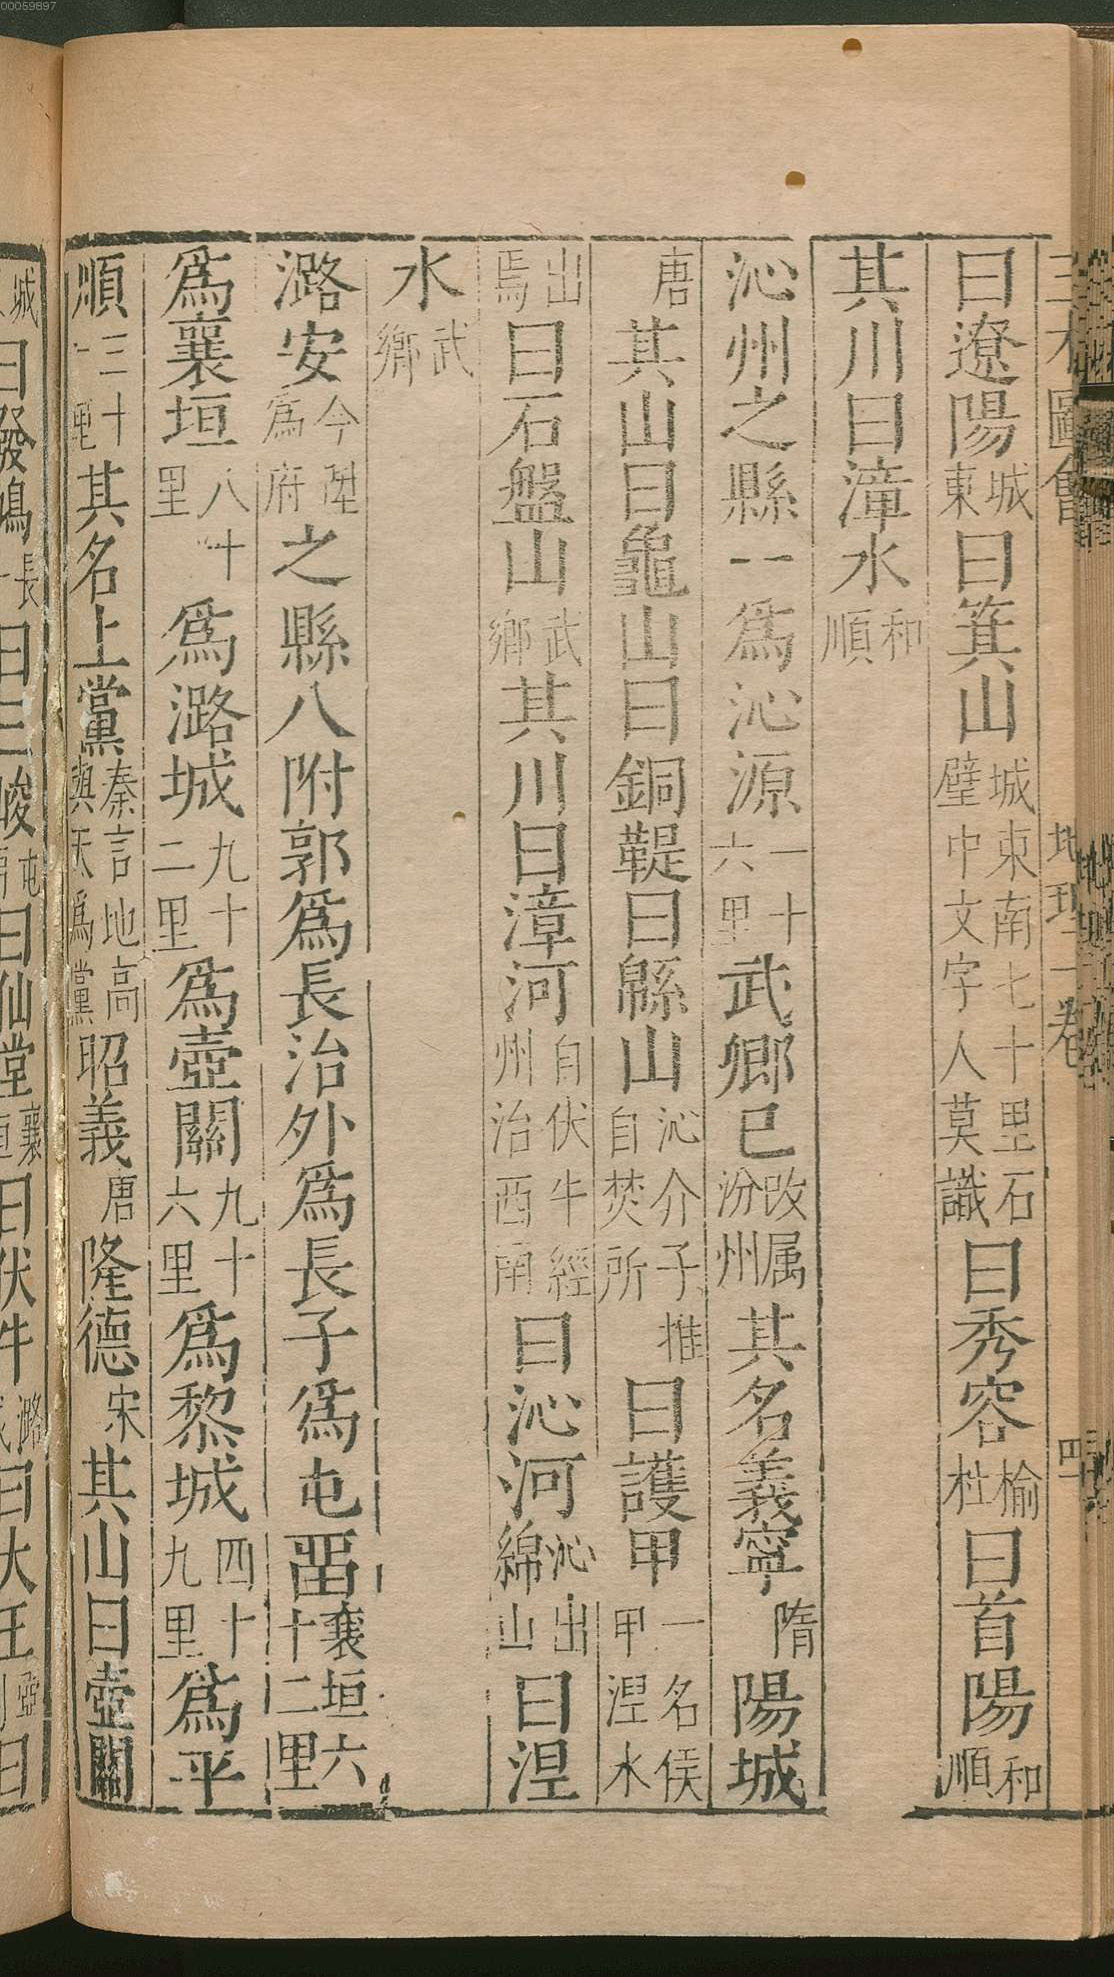 曰遼陽城東曰箕山城東南七十里石壁中文字人莫識曰秀容榆社曰首陽和順
其川曰漳水和順
沁州之縣一為沁源一十六里武鄉已改属汾州其名義寧隋陽城
唐其山曰龜山曰銅鞮曰緜山沁介子推自焚所曰護甲一名侯甲涅水
出焉曰石盤山武鄉其川曰漳河自伏牛經州治西南曰沁河沁出綿山曰涅
水武鄉
潞安今陞為府之縣八附郭為長治外為長子為屯畱襄垣六十二里
為襄垣八十里為潞城九十二里為壺關九十六里為黎城四十九里為平
順三十一里其名上黨秦言地高與天為黨昭義唐隆德宋其山曰壺關
曰發鳩長曰三峻屯曰仙堂襄垣曰伏牛潞曰大王壺曰
00059897